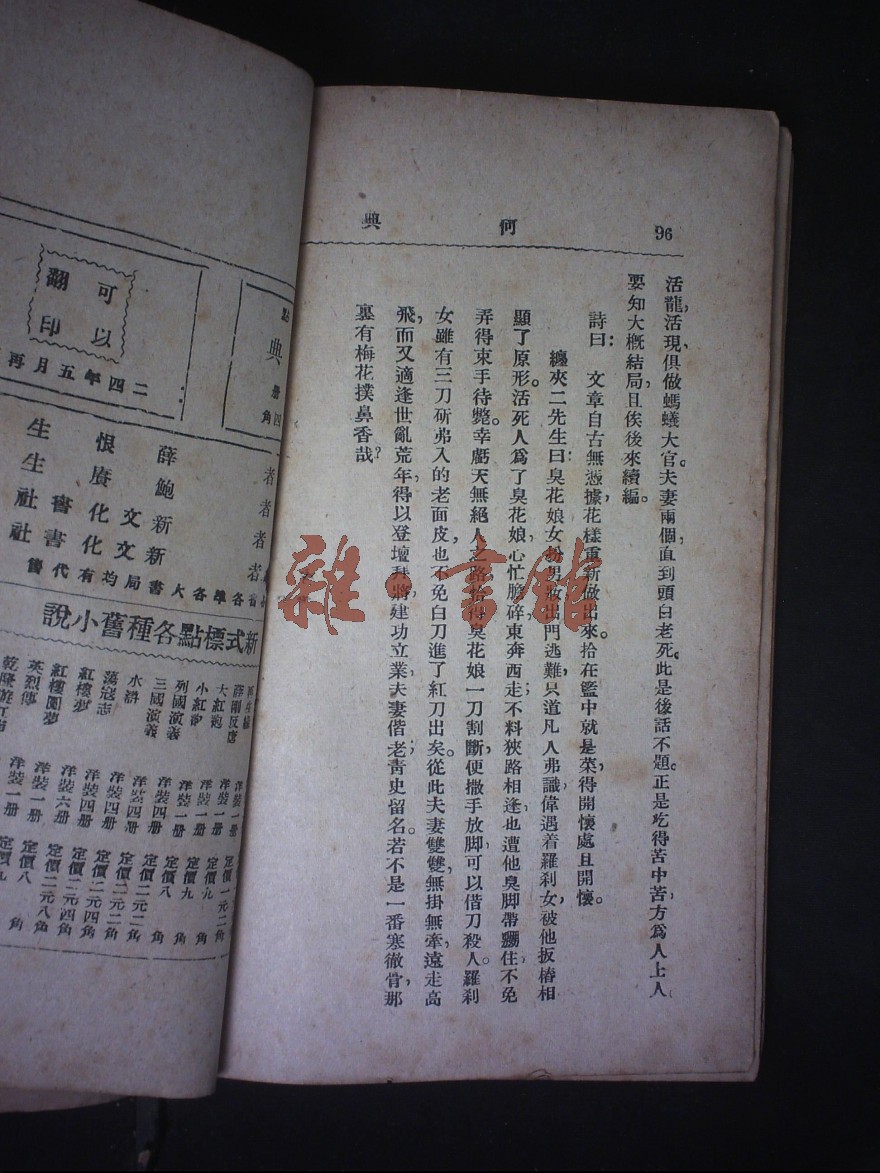 96
何典
活龍活現，俱做螞蟻大官。夫妻兩個，直到頭白老死。此是後話不題。正是吃得苦中苦，方爲人上人
要知大概結局，且俟後來續編。
詩曰：　文章自古無憑據，花樣重新做出來。拾在籃中就是菜，得開懷處且開懷。
纏夾二先生曰：臭花娘女扮男妝，出門逃難，只道凡人弗識，偉遇着羅刹女，被他扳樁相
顯了原形。活死人爲了臭花娘，心忙膽碎，東奔西走；不料狹路相逢，也遭他臭脚帶綳住，不免
弄得束手待斃。幸虧天無絕人之路，恰得臭花娘一刀割斷，便撒手放脚，可以借刀殺人。羅刹
女雖有三刀斫弗入的老面皮，也不免白刀進了紅刀出矣。從此夫妻雙雙，無掛無牽，遠走高
飛，而又適逢世亂荒年，得以登壇拜將，建功立業，夫妻偕老，青史留名。若不是一番寒徹骨，那
裏有梅花撲鼻香哉？
雜·書館
點
典
册
四角
可以
翻印
二四年五月再
者　薛恨生
者　鮑賡生
者　新文化書社
者　新文化書社
各大書局均有代售
新式標點各種舊小說
薛剛反唐　洋裝一册
大紅袍　洋裝一册　定價一元二角
小紅袍　洋裝一册　定價九角
列國演義　洋裝一册　定價九角
三國演義　洋裝四册　定價八角
水滸　洋裝四册　定價二元二角
蕩寇志　洋裝四册　定價二元二角
紅樓夢　洋裝四册　定價二元四角
紅樓圓夢　洋裝六册　定價二元四角
英烈傳　洋裝一册　定價二元八角
乾隆遊江南　洋裝一册　定價八角